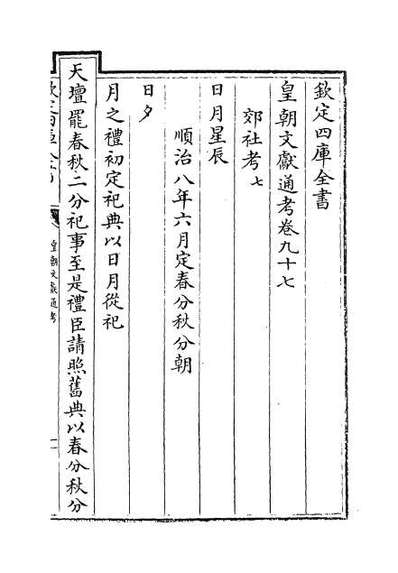 欽定四庫全書
皇朝文獻通考卷九十七
郊社考七
日月星辰
順治八年六月定春分秋分朝
日夕
月之禮初定祀典以日月從祀
天壇罷春秋二分祀事至是禮臣請照舊典以春分秋分
皇朝文獻通考
一